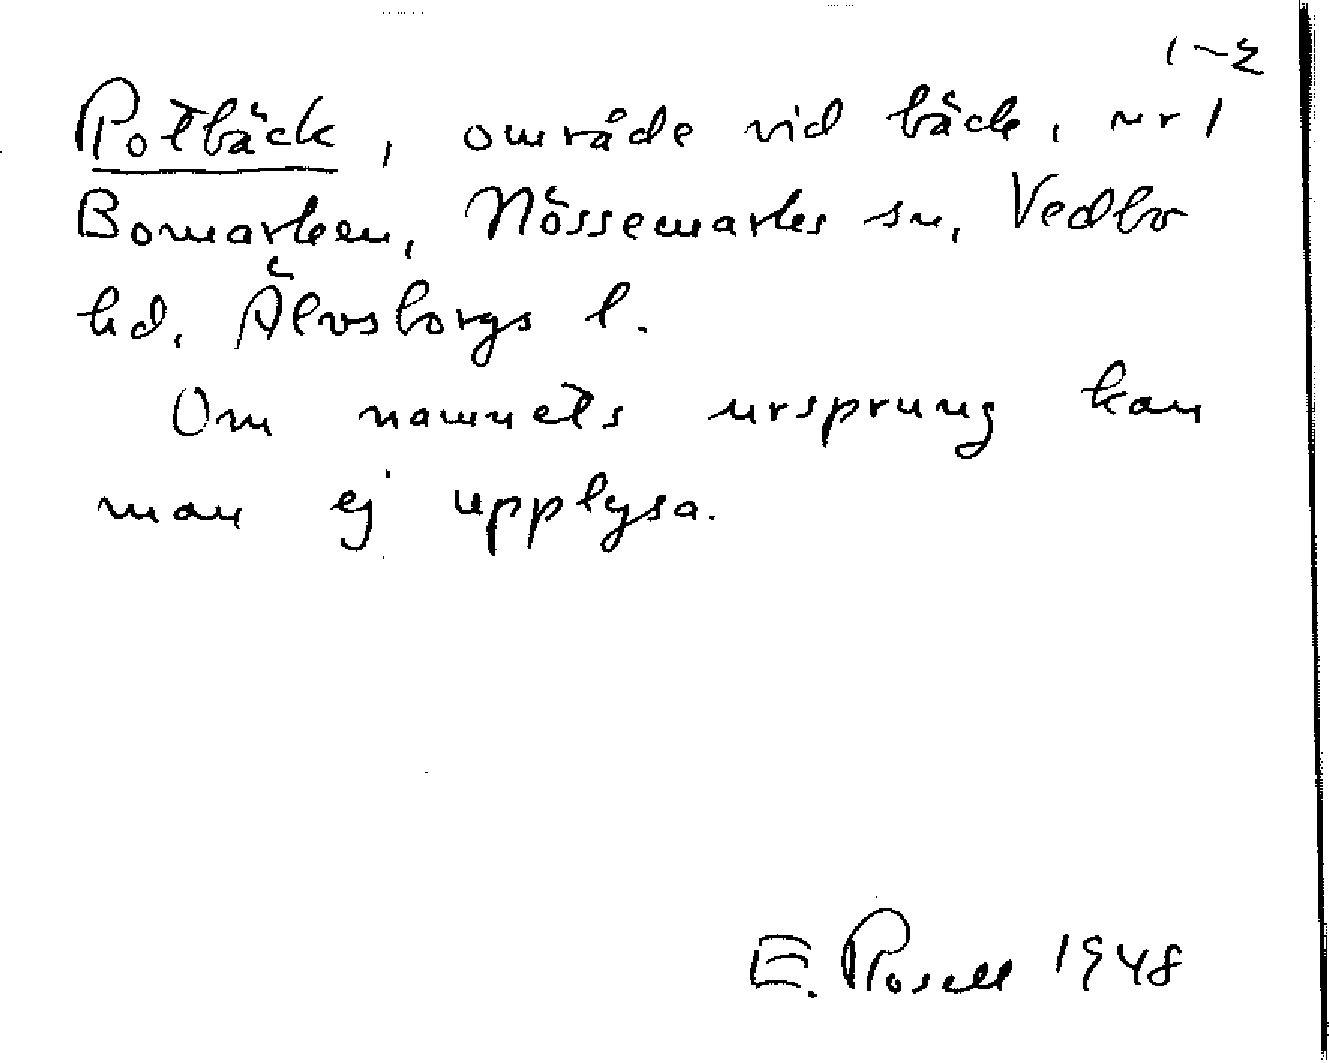 1-2
Potbäck, område vid bäck, nr 1
Bomarken, Nössemarks sn, Vedbo
hd, Älvsborgs l.
Om namnets ursprung kan
man ej upplysa.
E. Rosell 1948